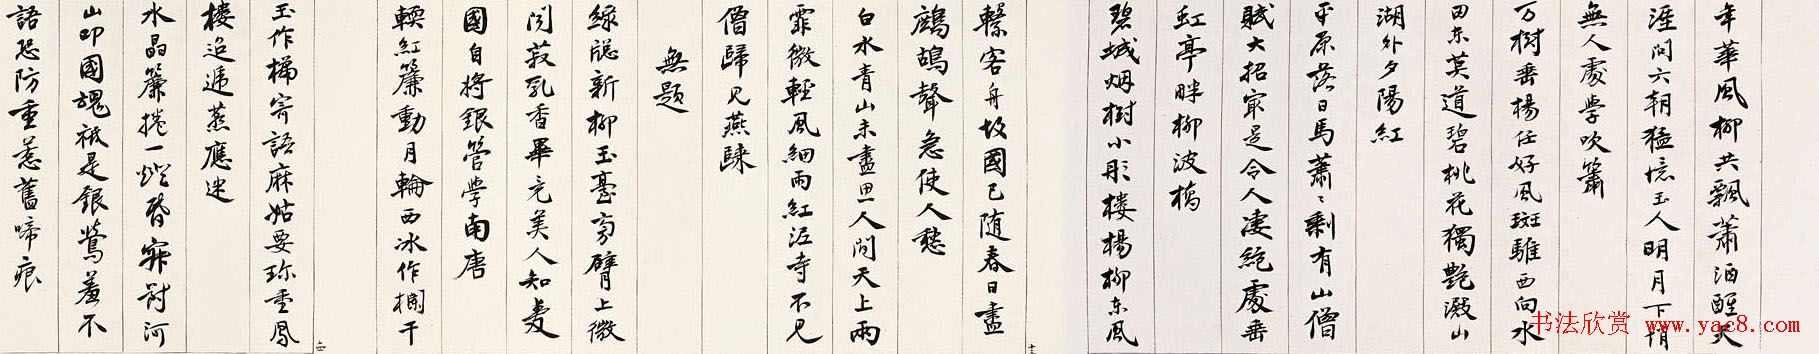 年華風柳共飄蕭酒醒天
涯問六朝猛憶玉人明月下悄
無人處學吹簫
万樹垂楊任好風斑騅西向水
田东莫道碧桃花獨艷澱山
湖外夕陽紅
平原落日馬蕭〻剩有山僧
賦大招最是令人淒絕處垂
虹亭畔柳波橋
碧城烟樹小彤樓楊柳东風
繫客舟故國已随春日盡
鷓鴣聲急使人愁
白水青山未盡思人間天上兩
霏微輕風細雨紅泥寺不見
僧歸見燕歸
無題
綠窗新柳玉臺旁臂上微
聞菽乳香畢竟美人知愛
國自將銀管學南唐
輭紅簾動月輪西冰作欄干
玉作梯寄語麻姑要珍重鳳
樓迢遞燕應迷
水晶簾捲一燈昏寂對河
山叩國魂祇是銀鶯羞不
語恐防重惹舊啼痕
十三
十四
书法欣赏 www.yac8.com